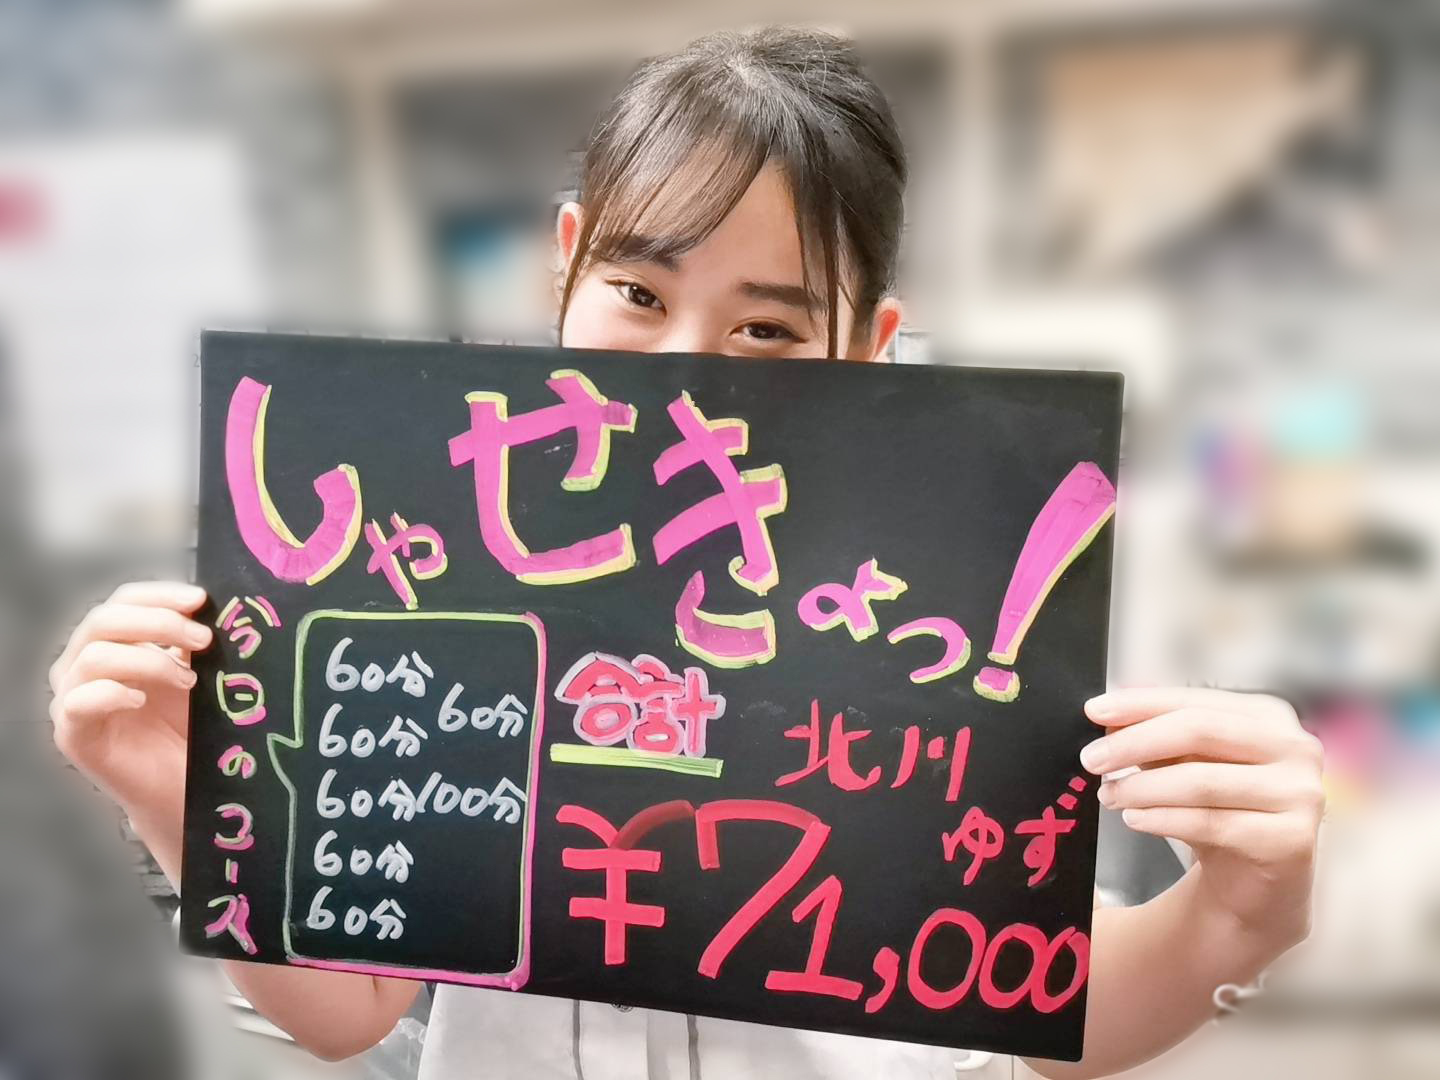 しゃせきょっ!
今日のコース
60分
60分
60分
60分/100分
60分
60分
合計
北川
ゆず
¥71,000